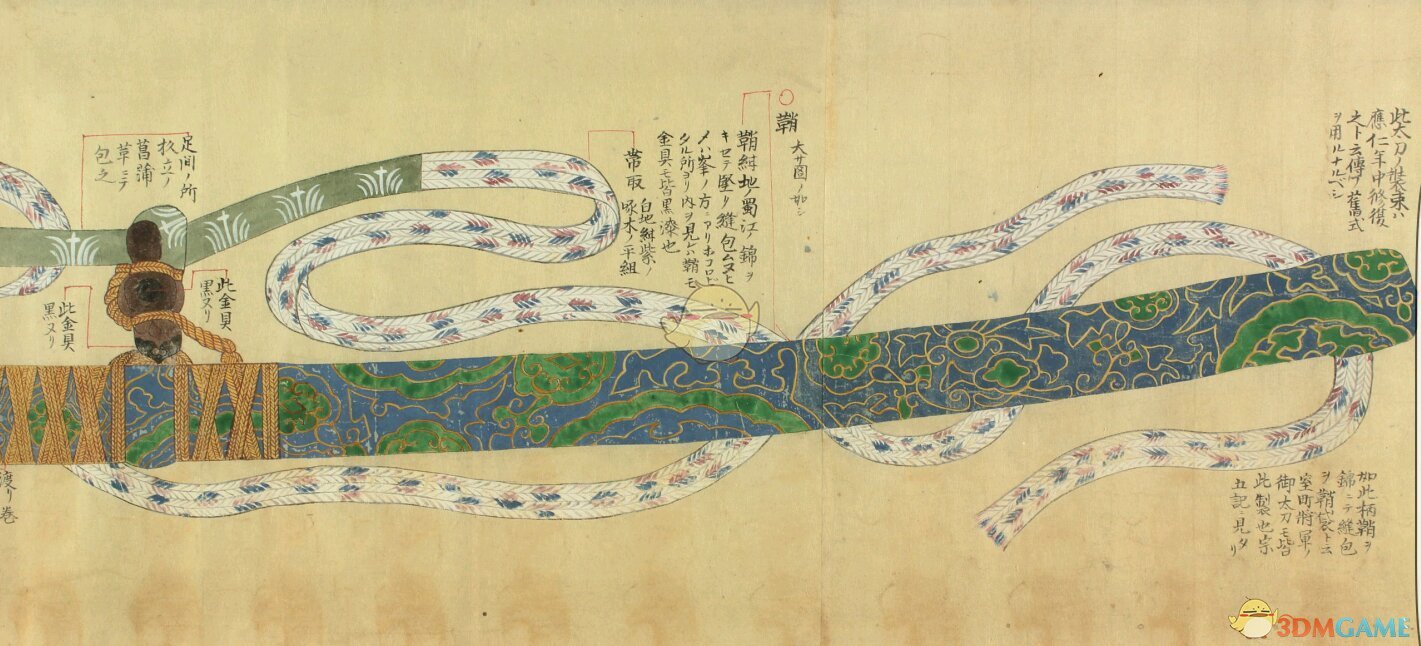 此太刀ノ装束ハ
應仁年中修復
之ト云傳フ舊式
ヲ用ルナルベシ
鞘
大サ圖ノ如シ
鞘紺地ノ蜀江ノ錦ヲ
キセテ堅ク縫包ムヌヒ
メハ峯ノ方ニアリホコロビ
タル所ヨリ内ヲ見レバ鞘モ
金具モ皆黒漆也
帯取
白地紺紫ノ
啄木ノ平組
足間ノ所
杦立ノ
菖蒲
革ニテ
包之
此金具
黒ヌリ
此金具
黒ヌリ
渡リ巻
如此柄鞘ヲ
錦ニテ縫包
ヲ鞘袋ト云
室町将軍ノ
御太刀モ皆
此製也宗
五記ニ見タリ
3DMGAME